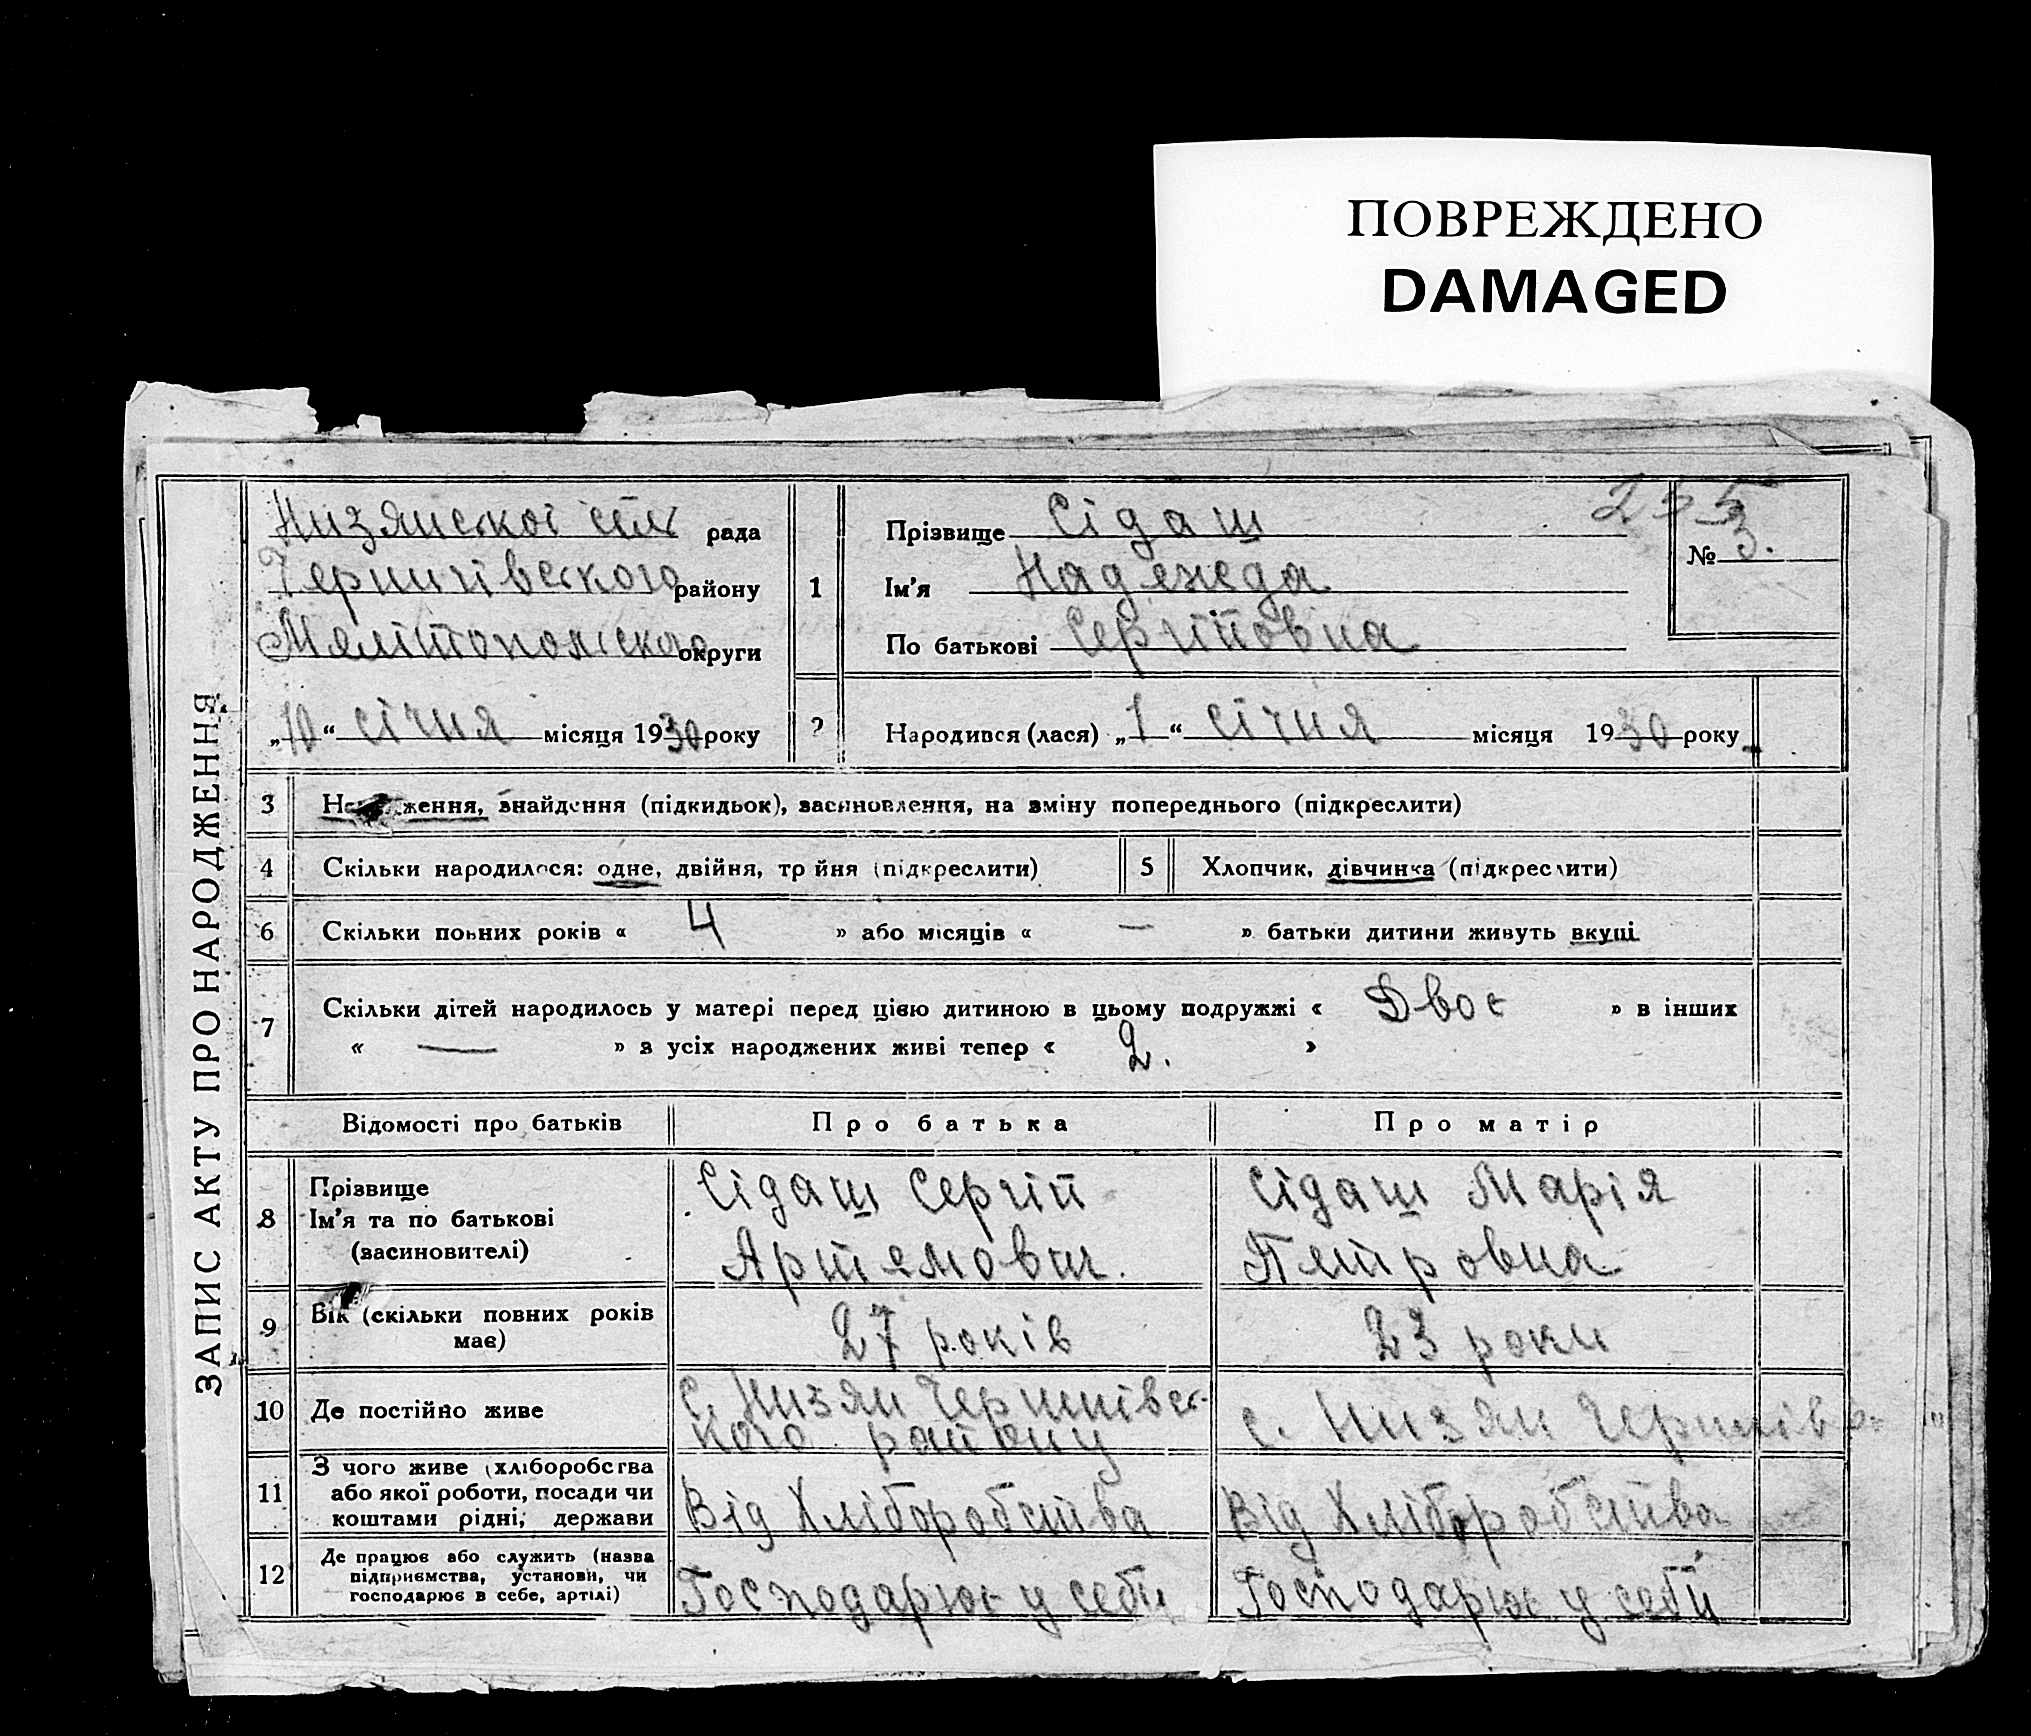 ПОВРЕЖДЕНО
DAMAGED
ЗАПИС АКТУ ПРО НАРОДЖЕННЯ
Низянської сіль рада
Чернигівського району
Мелітопольського округи
„10“ січня місяця 1930 року
235
№ 3.
1
Прізвище Сідаш
Ім'я Надежда
По батькові Сергійовна
2 Народився (лася) „1“ січня місяця 1930 року
3 Народження, знайдення (підкидьок), засиновлення, на зміну попереднього (підкреслити)
4 Скільки народилося: одне, двійня, тройня (підкреслити)
5 Хлопчик, дівчинка (підкреслити)
6 Скільки повних років « 4 » або місяців « — » батьки дитини живуть вкупі
7 Скільки дітей народилось у матері перед цією дитиною в цьому подружжі « Двоє » в інших
« — » з усіх народжених живі тепер « 2. »
Відомості про батьків Про батька Про матір
8 Прізвище
Ім'я та по батькові
(засиновителі)
Сідаш Сергій
Артемович.
Сідаш Марія
Петровна
9 Вік (скільки повних років
має)
27 років
23 роки
10 Де постійно живе
с. Низян Чернигівсь-
кого району
с. Низян Чернигів
11 З чого живе (хліборобства
або якої роботи, посади чи
коштами рідні, держави
Від Хліборобства
Від Хліборобства
12 Де працює або служить (назва
підприємства, установи, чи
господарює в себе, артілі)
Господарює у себи
Господарює у себи